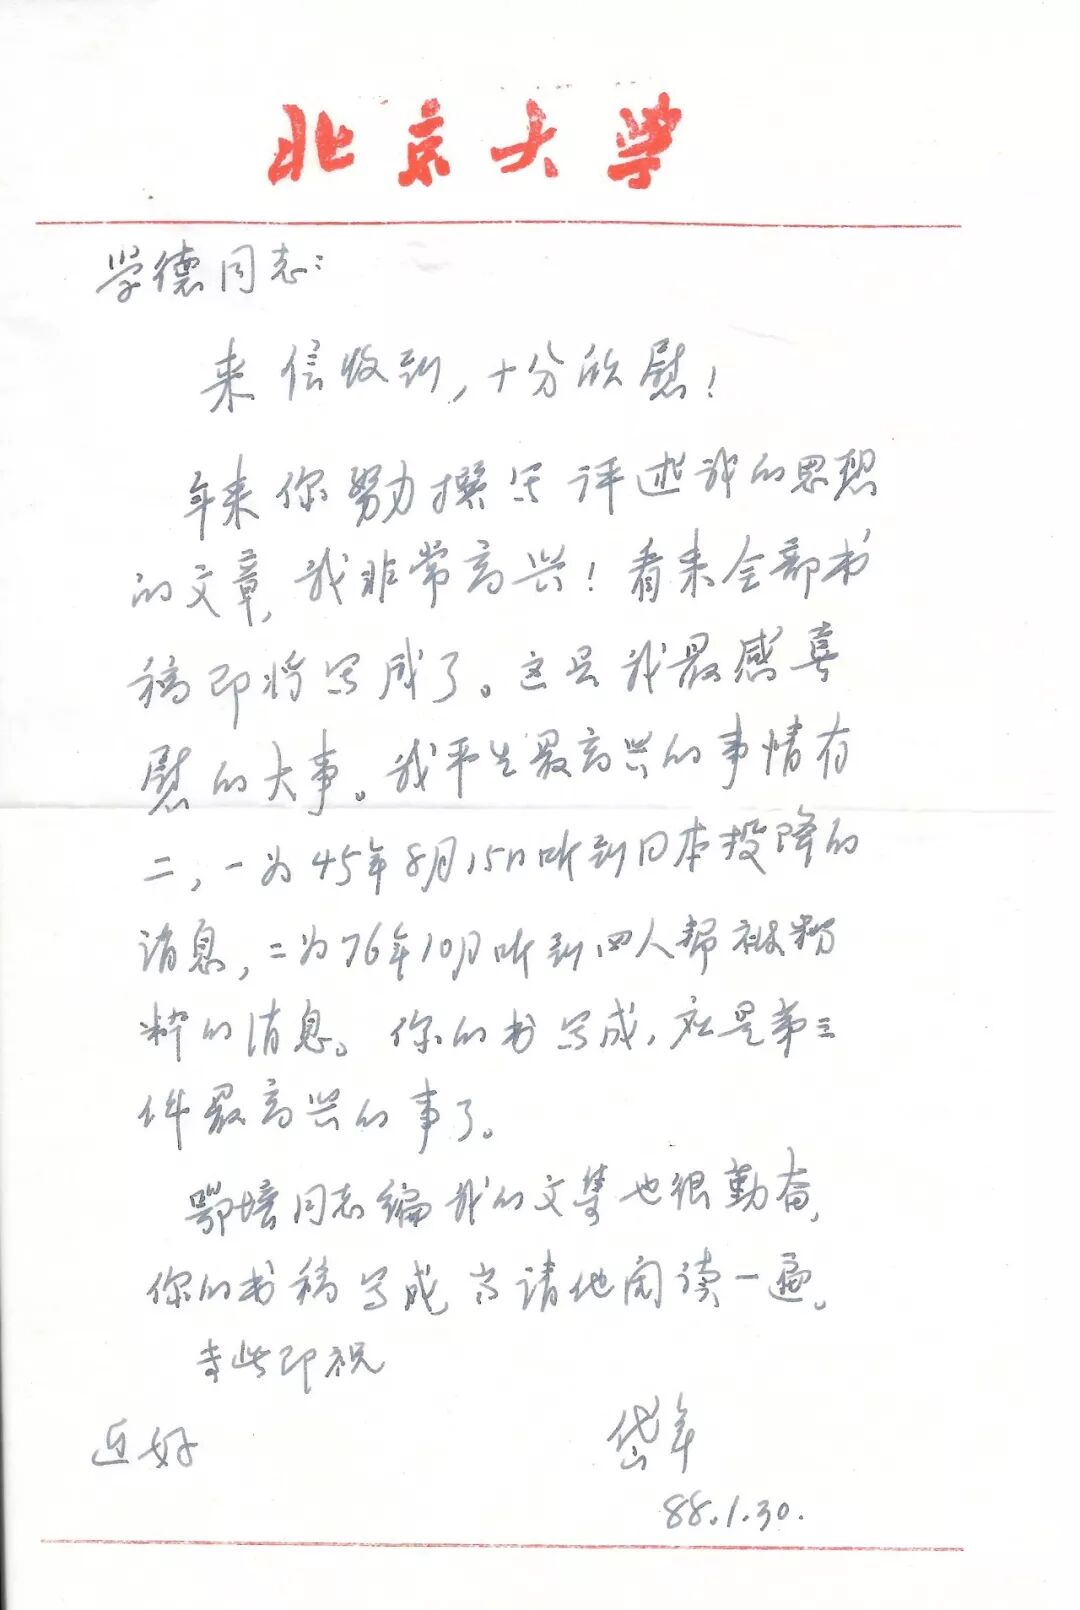 北京大学
学德同志：
来信收到，十分欣慰！
年来你努力撰写评述我的思想
的文章，我非常高兴！看来全部书
稿即将写成了。这是我最感喜
慰的大事。我平生最高兴的事情有
二，一为45年8月15日听到日本投降的
消息，二为76年10月听到四人帮被粉
粹的消息。你的书写成，就是第三
件最高兴的事了。
鄂培同志编我的文集也很勤奋，
你的书稿写成，当请他阅读一遍。
专此即祝
近好
岱年
88.1.30.